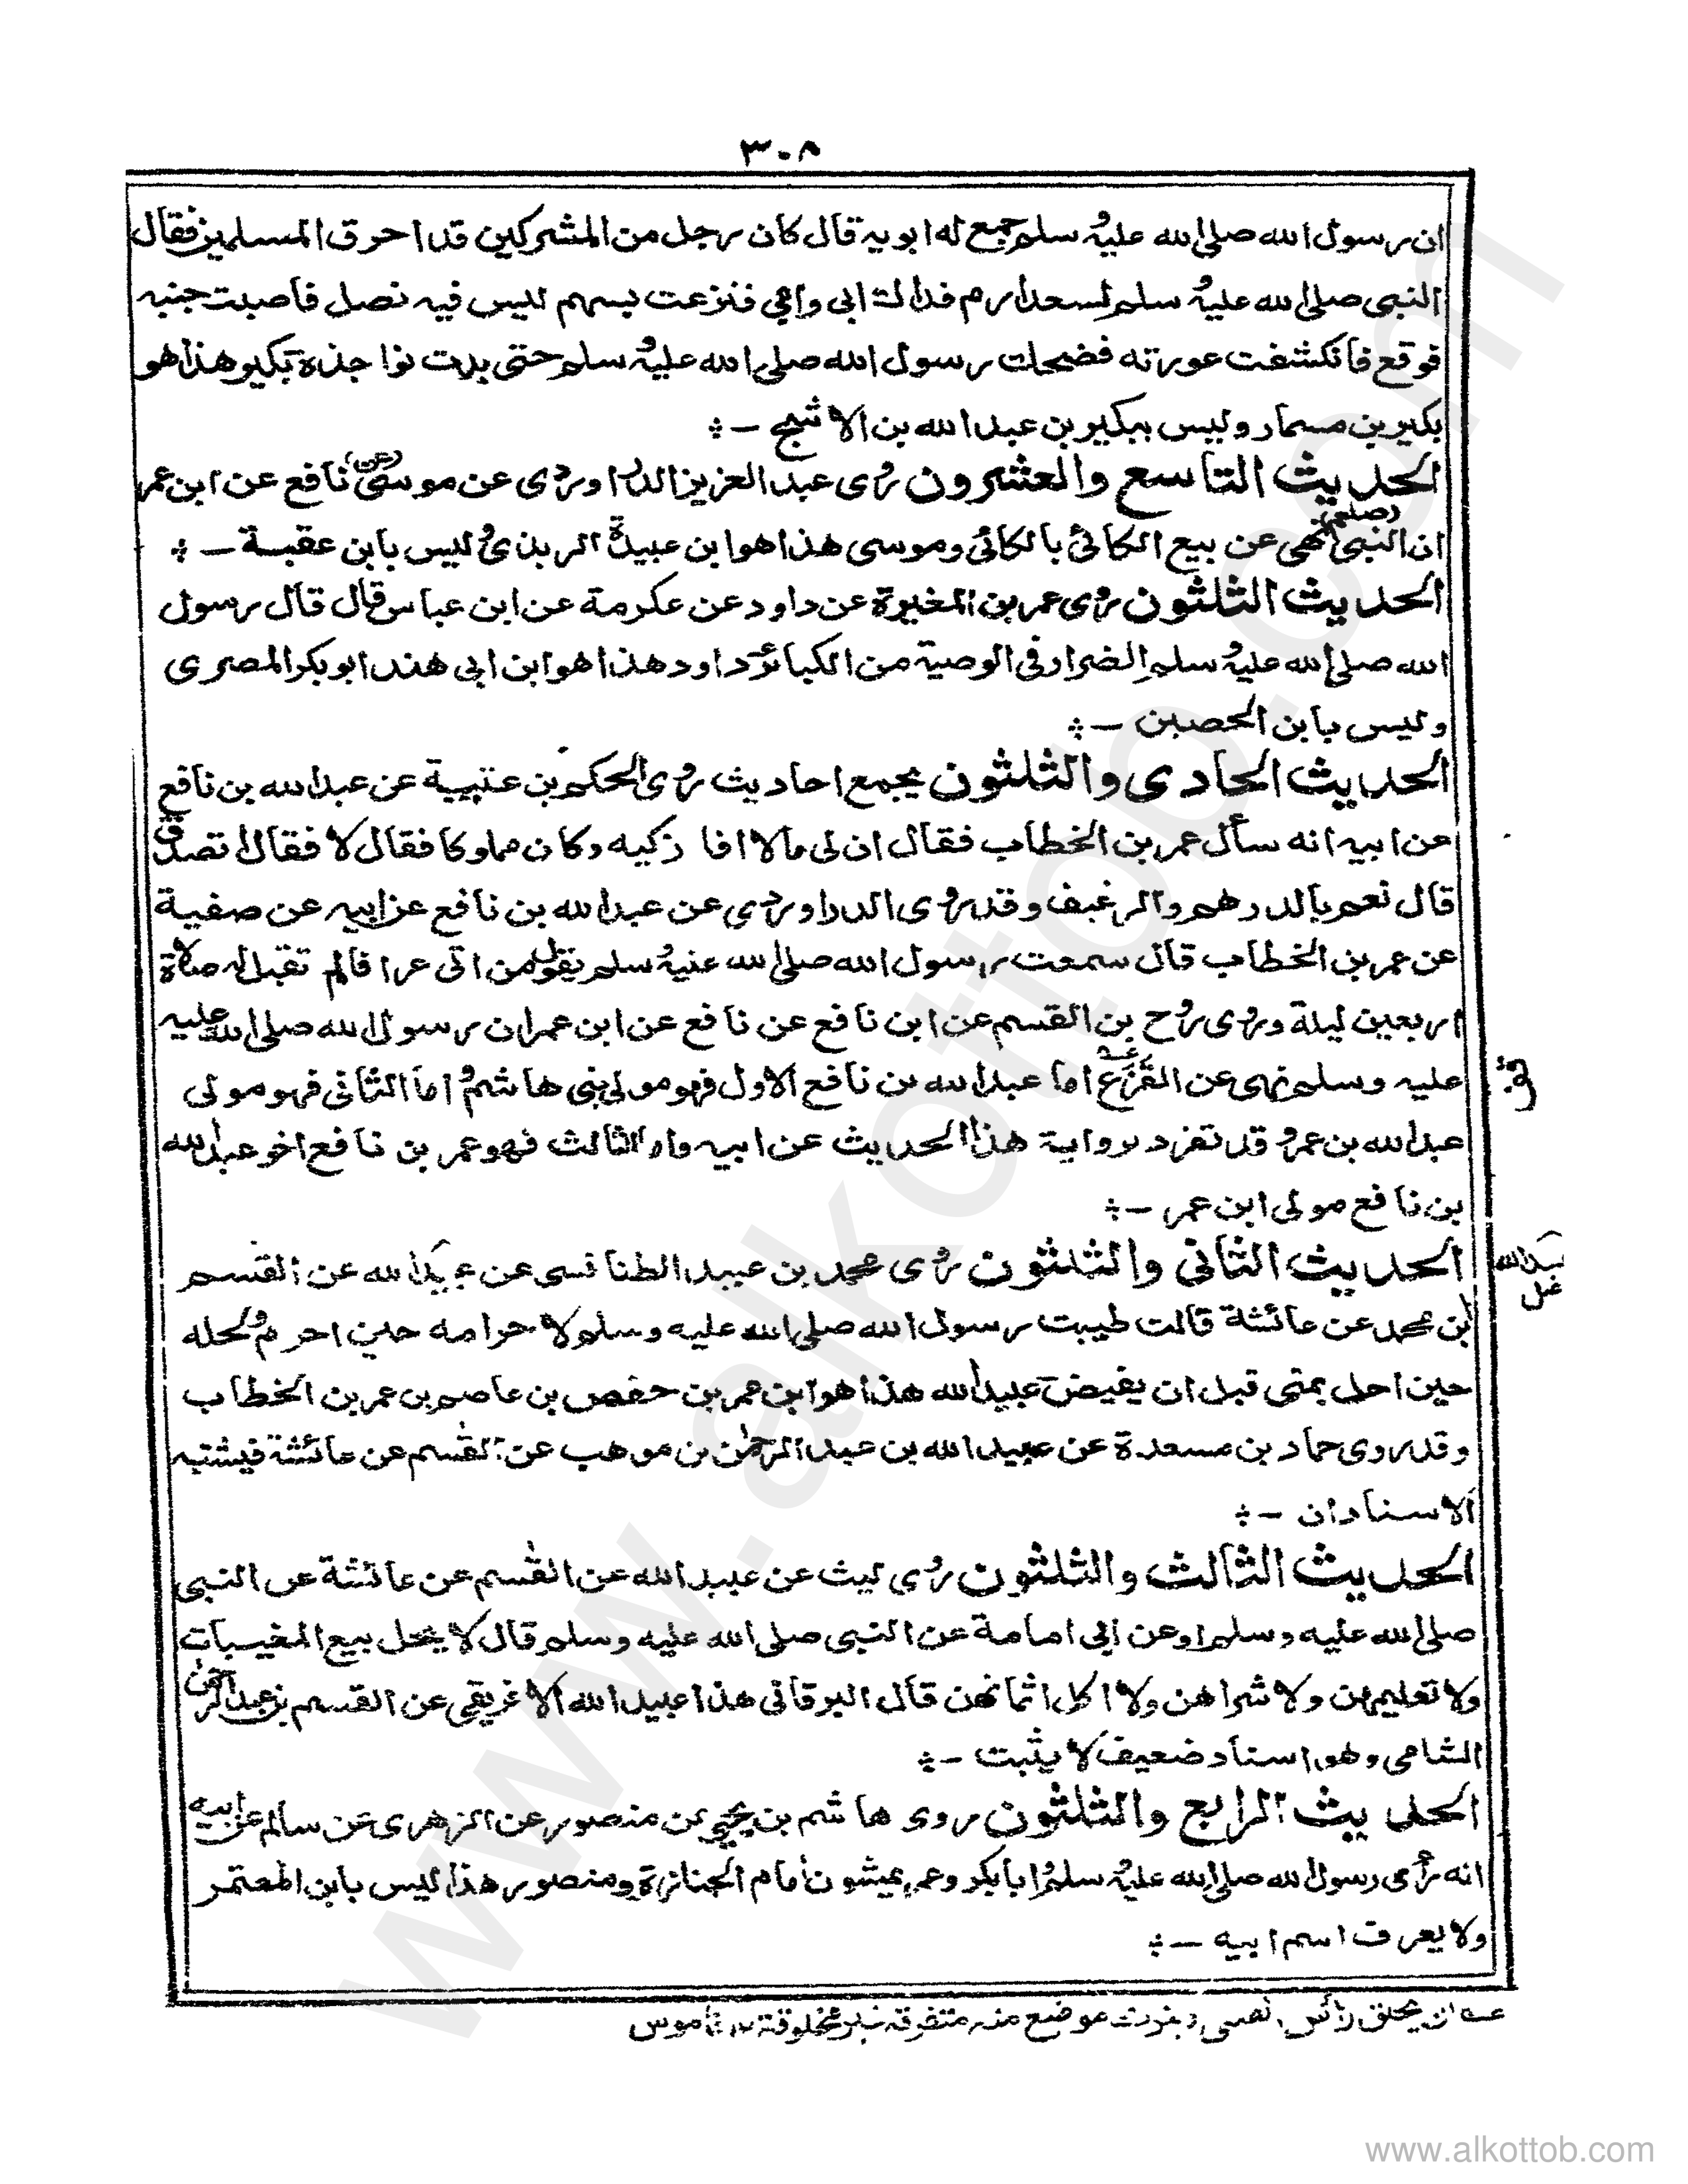 ٣٠٨
ان رسول الله صلى الله عليه وسلم جمع له ابويه قال كان رجل من المشركين قد احرق المسلمين فقال
النبي صلى الله عليه وسلم لسعد ارم فداك ابي وامي فنزعت بسهم ليس فيه نصل فاصبت جنبه
فوقع فانكشفت عورته فضحك رسول الله صلى الله عليه وسلم حتى بدت نواجذه بكير هذا هو
بكير بن مسمار وليس ببكير بن عبد الله بن الاشج -
الحديث التاسع والعشرون روى عبد العزيز الدراوردى عن موسى (عن) نافع عن ابن عمر
ان النبى (صلعم) نهى عن بيع الكالئ بالكالئ وموسى هذا هو ابن عبيدة الربذى وليس بابن عقبة -
الحديث الثلثون روى عمر بن المغيرة عن داود عن عكرمة عن ابن عباس قال قال رسول
الله صلى الله عليه وسلم الضرار فى الوصية من الكبائر داود هذا هو ابن ابى هند ابو بكر المصرى
وليس بابن الحصين -
الحديث الحادى والثلثون يجمع احاديث روى الحكم بن عتيبة عن عبد الله بن نافع
عن ابيه انه سأل عمر بن الخطاب فقال ان لى مالا افازكيه وكان مملوكا فقال لا فقال اتصدق
قال نعم بالدرهم والرغيف وقد روى الدراوردى عن عبد الله بن نافع عن ابيه عن صفية
عن عمر بن الخطاب قال سمعت رسول الله صلى الله عليه وسلم يقول من اتى عرافا لم تقبل له صلاة
اربعين ليلة وروى روح بن القسم عن ابن نافع عن نافع عن ابن عمر ان رسول الله صلى الله عليه
عليه وسلم نهى عن القزع اما عبد الله بن نافع الاول فهو مولى بنى هاشم واما الثانى فهو مولى
عبد الله بن عمر وقد تفرد برواية هذا الحديث عن ابيه واما الثالث فهو عمر بن نافع اخو عبد الله
بن نافع مولى ابن عمر -
الحديث الثانى والثلثون روى محمد بن عبيد الطنافسى عن عبيد الله عن القسم
عبيد الله
ابن محمد عن عائشة قالت طيبت رسول الله صلى الله عليه وسلم لاحرامه حين احرم ولحله
حين احل بمنى قبل ان يفيض عبيد الله هذا هو ابن عمر بن حفص بن عاصم بن عمر بن الخطاب
وقد روى حماد بن مسعدة عن عبيد الله بن عبد الرحمن بن موهب عن القسم عن عائشة فيشتبه
الاسنادان -
الحديث الثالث والثلثون روى ليث عن عبيد الله عن القسم عن عائشة عن النبى
صلى الله عليه وسلم او عن ابى امامة عن النبى صلى الله عليه وسلم قال لا يحل بيع المغيبات
ولا تعليمهن ولا شراهن ولا اكل اثمانهن قال البرقانى هذا عبيد الله الافريقى عن القسم بن عبد الرحمن
الشامى وهو اسناد ضعيف لا يثبت -
الحديث الرابع والثلثون روى هاشم بن يحيى عن منصور عن الزهرى عن سالم عن ابيه
انه رأى رسول الله صلى الله عليه وسلم وابا بكر وعمر يمشون امام الجنازة ومنصور هذا ليس بابن المعتمر
ولا يعرف اسم ابيه -
عـه ان يحلق رأس الصبى ويترك موضع منه متفرقة غير مخلوقة ١٢ قاموس
www.alkottob.com
www.alkottob.com